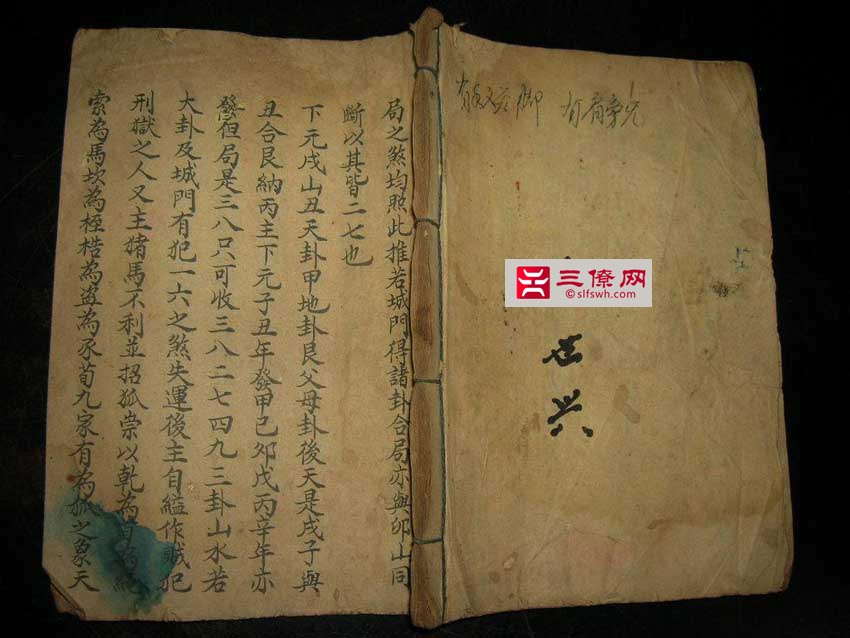 脚 有
三僚网
©slfswh.com
世兴
局之煞均照此推若城門得諸卦合局亦與卯山同
斷以其皆二七也
下元戌山丑天卦甲地卦艮父母卦後天是戌子與
丑合艮納丙主下元子丑年發甲己卯戊丙辛年亦
發但局是三八只可收三八二七四九三卦山水若
大卦及城門有犯一六之煞失運後主自縊作賊犯
刑獄之人又主猪馬不利並招狐祟以乾為
索為馬坎為桎梏為盗為豕荀九家有為狐之象天